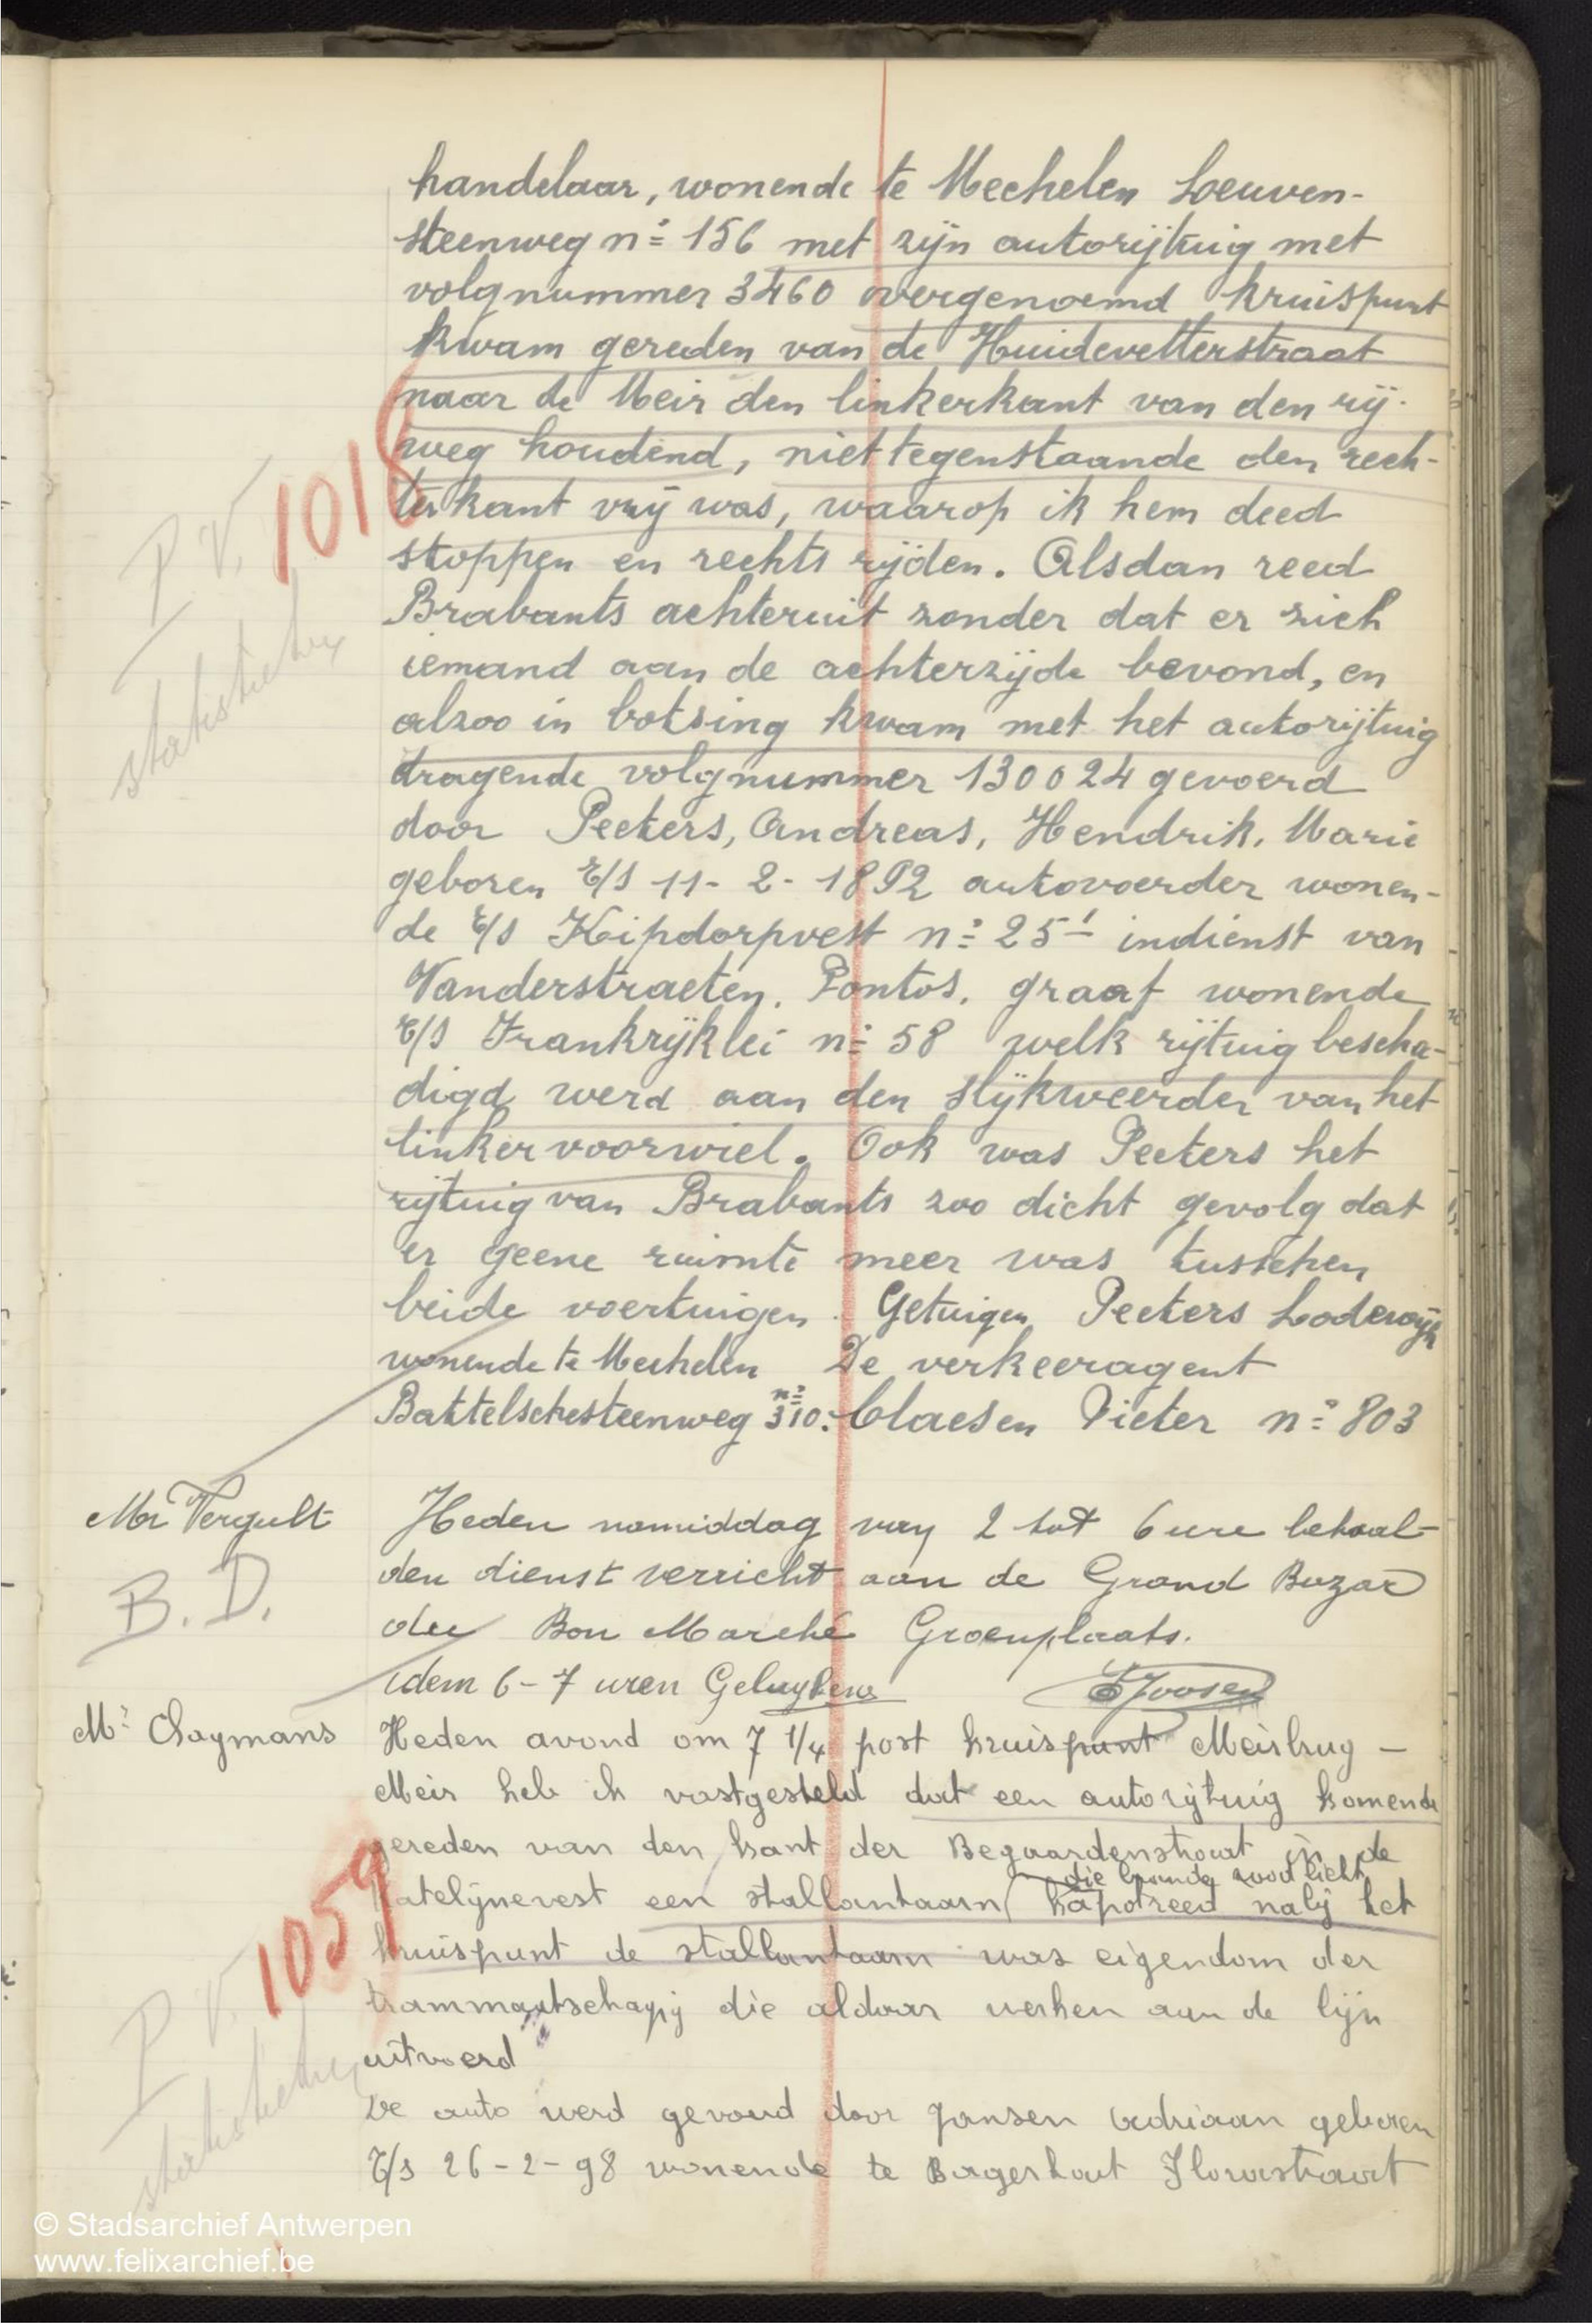 handelaar, wonende te Mechelen Leuven-
steenweg nº 156 met zijn autorijtuig met
volgnummer 3460 overgenoemd kruispunt
kwam gereden van de Huidevetterstraat
naar de Meir den linkerkant van den rij-
weg houdend, niettegenstaande den rech-
terkant vrij was, waarop ik hem deed
stoppen en rechts rijden. Alsdan reed
Brabants achteruit zonder dat er zich
iemand aan de achterzijde bevond, en
alzoo in botsing kwam met het autorijtuig
dragende volgnummer 130024 gevoerd
door Peeters, Andreas, Hendrik, Marie
geboren t/s 11-2-1892 autovoerder wonen-
de t/s Kipdorpvest nº 25¹ indienst van
Vanderstraeten, Pontos, graaf wonende
t/s Frankrijklei nº 58 welk rijtuig bescha-
digd werd aan den slijkweerder van het
linkervoorwiel. Ook was Peeters het
rijtuig van Brabants zoo dicht gevolg dat
er geene ruimte meer was tusschen
beide voertuigen. Getuigen Peeters Lodewijk
wonende te Mechelen De verkeeragent
Battelschesteenweg nº 310. Claesen Pieter nº 803
P.V. 1018
statistieken
Mr Vergult
B.D.
Heden namiddag van 2 tot 6 ure betaal-
den dienst verricht aan de Grand Bazar
du Bon Marché Groenplaats.
idem 6-7 uren Geluykens Joosen
Mr Claymans
Heden avond om 7 1/4 post kruispunt Meirbrug -
Meir heb ik vastgesteld dat een autorijtuig komende
gereden van den kant der Begaardenstraat in de
Katelijnevest een stallantaarn die brande rood licht kapotreed nabij het
kruispunt de stallantaarn was eigendom der
trammaatschapij die aldaar werken aan de lijn
uitvoerd
De auto werd gevoerd door Jansen Adriaan geboren
t/s 26-2-98 wonende te Borgerhout Florastraat
P.V. 1059
statistieken
© Stadsarchief Antwerpen
www.felixarchief.be